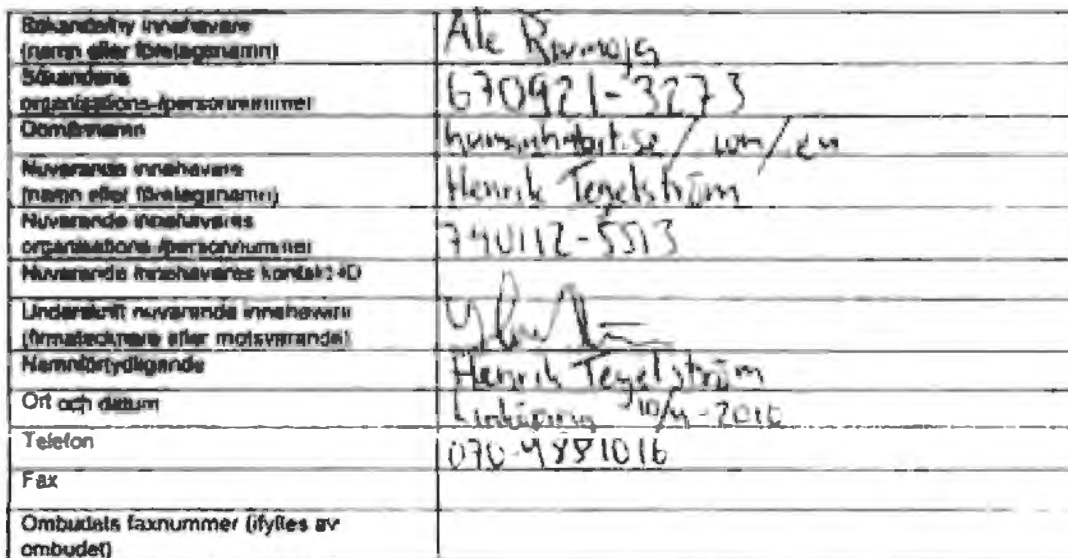 Sökande/ny innehavare
(namn eller företagsnamn)
Ale
Sökandens
organisations-/personnummer
670921-3273
Domännamn
Nuvarande innehavare
(namn eller företagsnamn)
Henrik Tegelström
Nuvarande innehavares
organisations-/personnummer
740112-5513
Nuvarande innehavares kontakt-ID
Underskrift nuvarande innehavare
(firmatecknare eller motsvarande)
Namnförtydligande
Henrik Tegelström
Ort och datum
Linköping
Telefon
070-9881016
Fax
Ombudets faxnummer (ifylles av
ombudet)